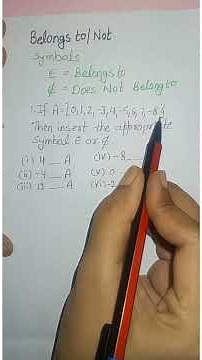 Belongs to/Not
Symbols
∈ = Belongs to
∉ = Does Not Belong to
1. If A={0,1,2,-3,4,-5,6,7,-8}
Then insert the appropriate
symbol ∈ or ∉
(i) 4 __ A (iv) -8
(ii) -4 __ A (v) 0
(iii) 12 __ A (vi) -2